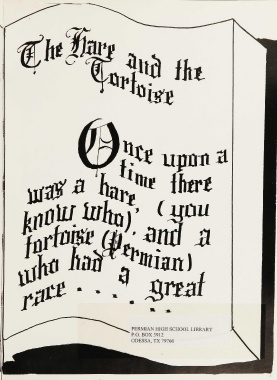 The Hare and the
Tortoise
Once upon a
time there
was a hare, (you
know who), and a
tortoise (Permian)
who had a great
race . . . . . .
PERMIAN HIGH SCHOOL LIBRARY
P.O. BOX 3912
ODESSA, TX 79760